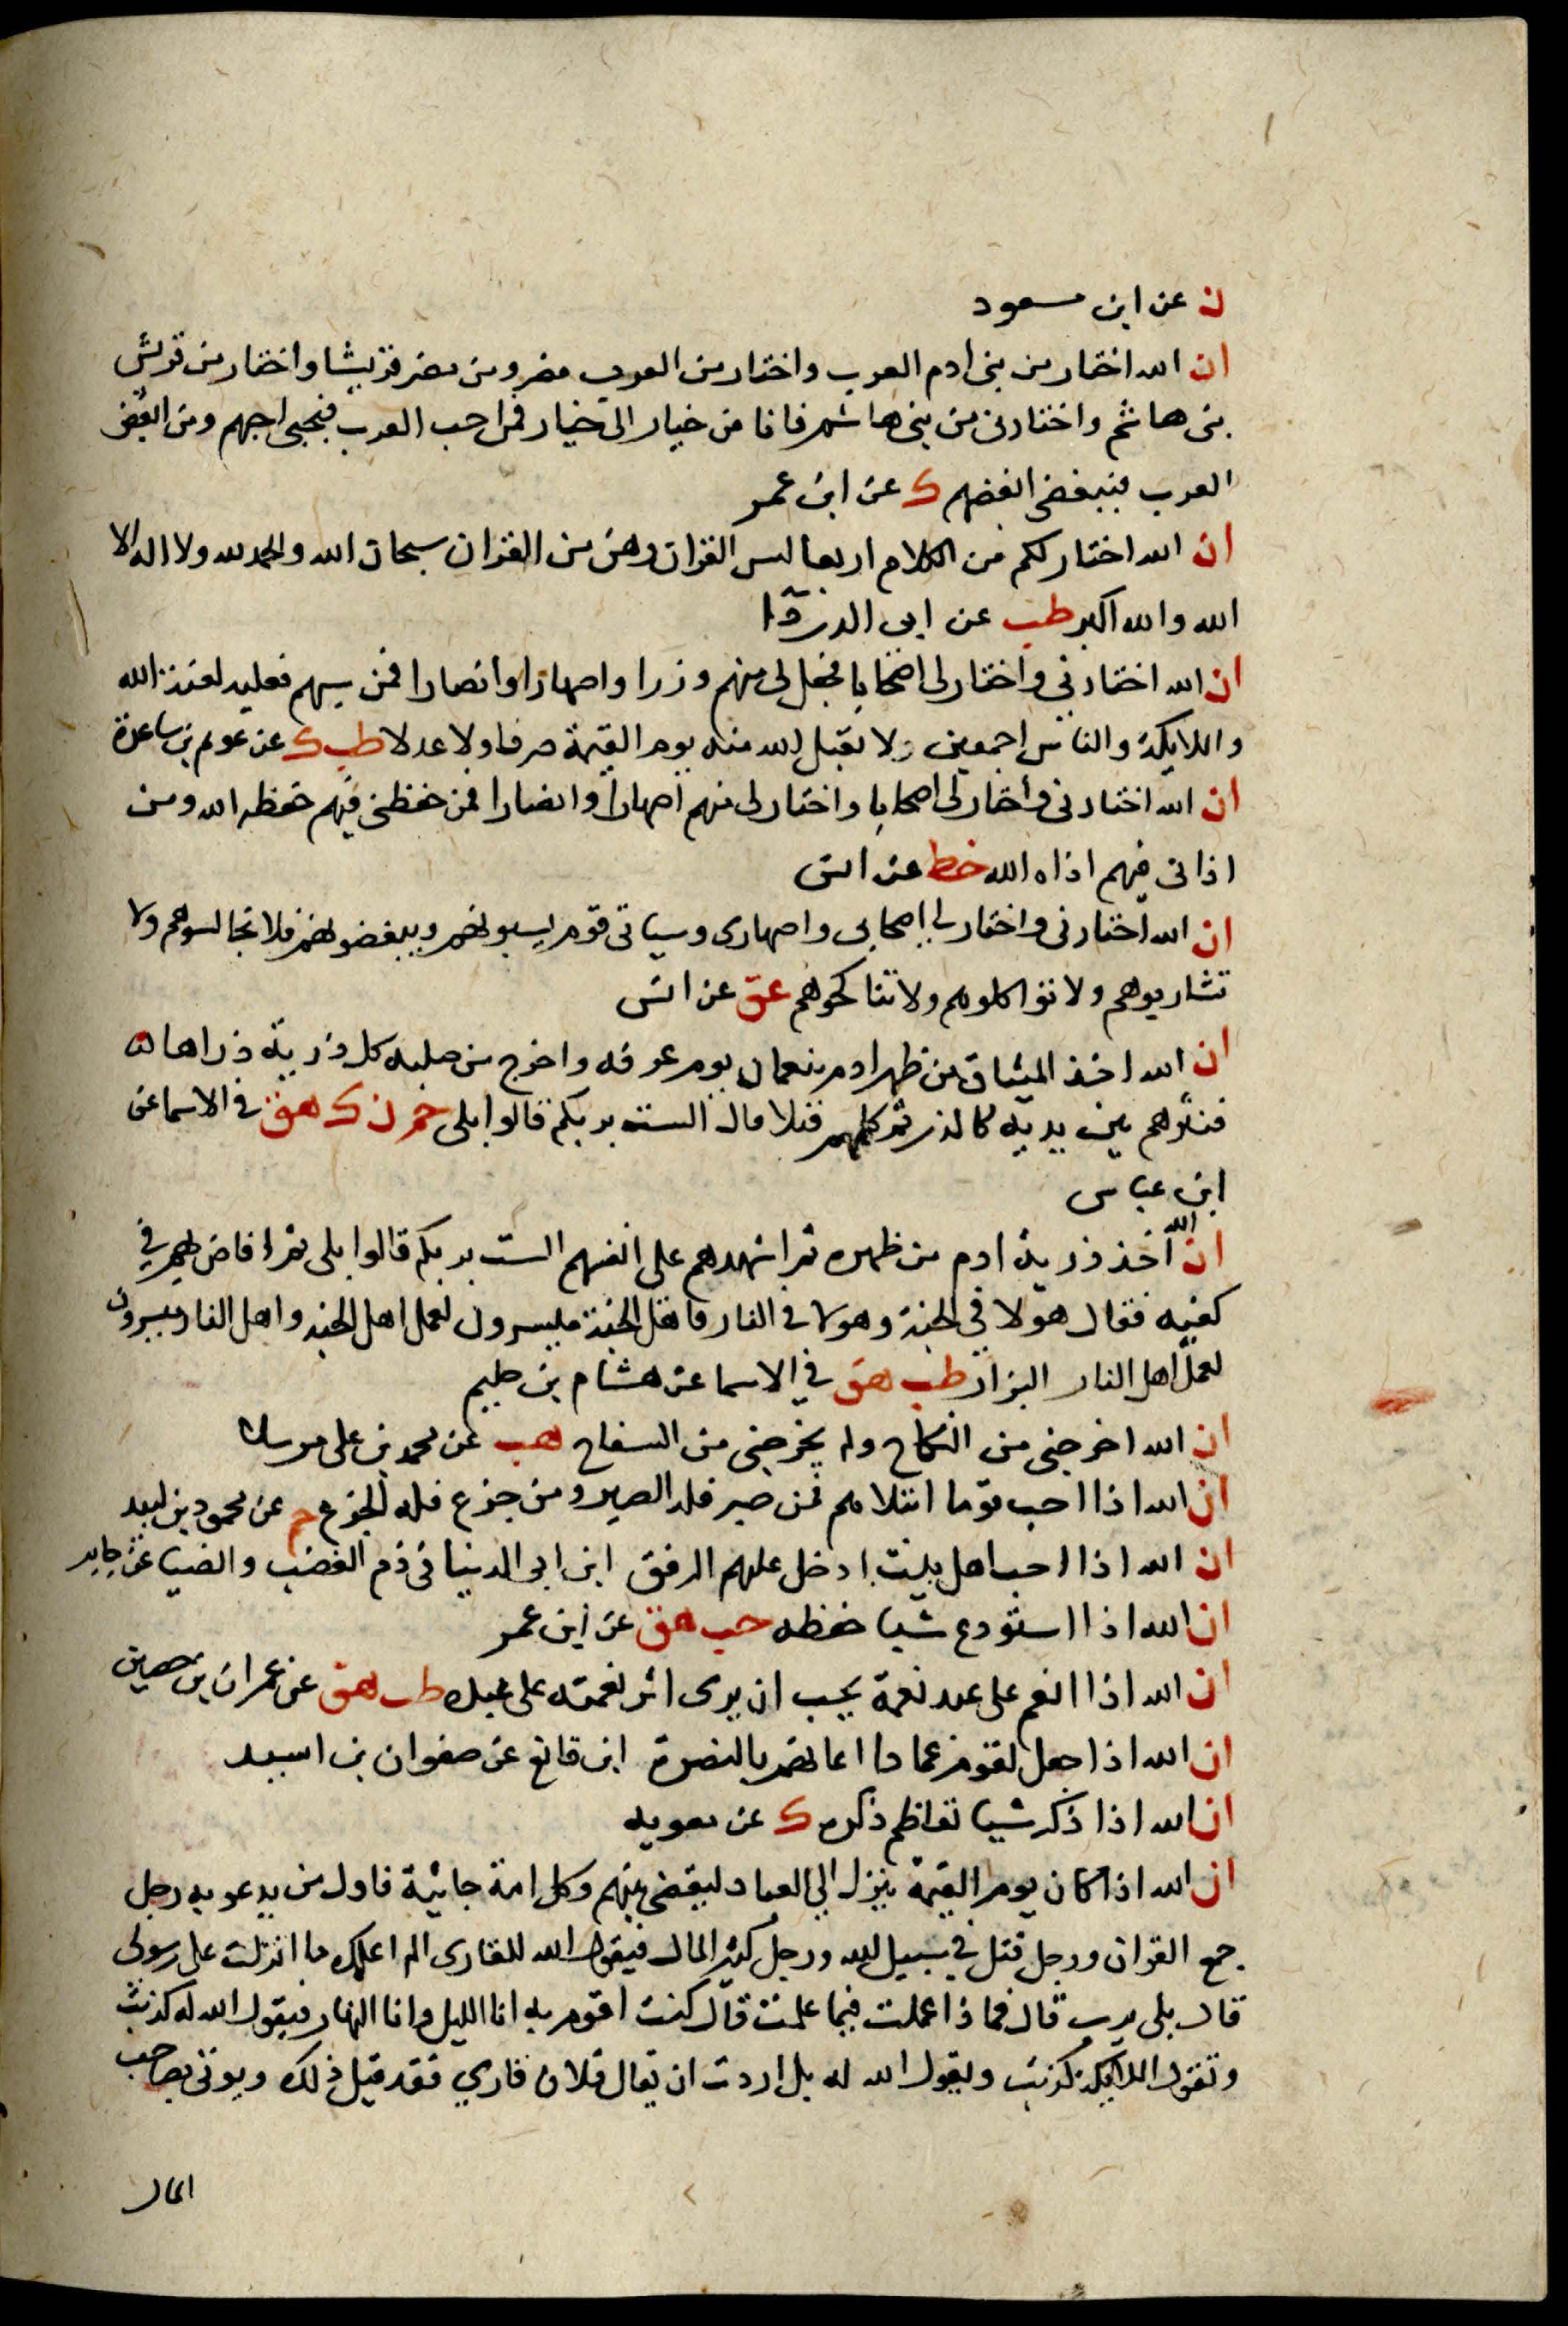 ن عن ابن مسعود
ان الله اختار من بنى ادم العرب واختار من العرب مضر ومن مضر قريشا واختار من قريش
بنى هاشم واختارنى من بنى هاشم فانا من خيار الى خيار فمن احب العرب فبحبى احبهم ومن ابغض
العرب فببغضى ابغضهم ك عن ابن عمر
ان الله اختار لكم من الكلام اربعا ليس القران وهن من القران سبحان الله والحمد لله ولا اله الا
الله والله اكبر طب عن ابى الدرداء
ان الله اختارنى واختار لى اصحابا فجعل لى منهم وزرا واصهارا وانصارا فمن سبهم فعليه لعنة الله
والملايكة والناس اجمعين ولا يقبل الله منه يوم القيمة صرفا ولا عدلا طب ك عن عويم بن ساعدة
ان الله اختارنى واختار لى اصحابا واختار لى منهم اصهارا وانصارا فمن حفظنى فيهم حفظه الله ومن
اذانى فيهم اذاه الله خط عن انس
ان الله اختارنى واختار لى اصحابى واصهارى وسياتى قوم يسبونهم ويبغضونهم فلا تجالسوهم ولا
تشاربوهم ولا تواكلوهم ولا تناكحوهم عق عن انس
ان الله اخذ الميثاق من ظهر ادم بنعمان يوم عرفه واخرج من صلبه كل ذرية ذراها
فنثرهم بين يديه كالذر ثم كلمهم قبلا قال الست بربكم قالوا بلى حم ن ك هق فى الاسما عن
ابن عباس
ان الله اخذ ذرية ادم من ظهره ثم اشهدهم على انفسهم الست بربكم قالوا بلى ثم افاض بهم فى
كفيه فقال هولا فى الجنة وهولا فى النار فاهل الجنة ميسرون لعمل اهل الجنة واهل النار ميسرون
لعمل اهل النار البزار طب هق فى الاسما عن هشام بن حكيم
ان الله اخرجنى من النكاح ولم يخرجنى من السفاح هب عن محمد بن على مرسلا
ان الله اذا احب قوما ابتلاهم فمن صبر فله الصبر ومن جزع فله الجزع حم عن محمود بن لبيد
ان الله اذا احب اهل بيت ادخل عليهم الرفق ابن ابى الدنيا فى ذم الغضب والضيا عن جابر
ان الله اذا استودع شيا حفظه حب هق عن ابن عمر
ان الله اذا انعم على عبد نعمة يحب ان يرى اثر نعمته على عبده طب هق عن عمران بن حصين
ان الله اذا جعل لقوم عمادا اعانهم بالنصرة ابن قانع عن صفوان بن اسيد
ان الله اذا ذكر شيا تعاظم ذكره ك عن معويه
ان الله اذا كان يوم القيمة ينزل الى العباد ليقضى بينهم وكل امة جاثية فاول من يدعو به رجل
جمع القران ورجل قتل فى سبيل الله ورجل كثير المال فيقول الله للقارى الم اعلمك ما انزلت على رسولى
قال بلى يرب قال فماذا عملت فيما علمت قال كنت اقوم به انا الليل وانا النهار فيقول الله له كذبت
وتقول الملايكة كذبت ويقول الله له بل اردت ان يقال فلان قارى فقد قيل ذلك ويوتى بصاحب
المال